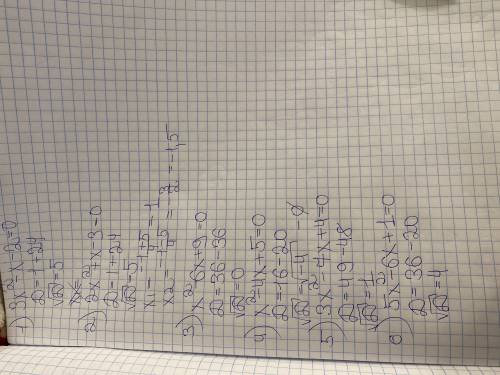 1) 3x²-x-2=0
D=1+24
√D=5
2) 2x²+x-3=0
D=1+24
√D=5
x1=(-1+5)/4=1
x2=(-1-5)/4=-3/2=-1,5
3) x²-6x+9=0
D=36-36
√D=0
4) x²-4x+5=0
D=16-20
√D=√-4 - ∅
5) 3x²-4x+4=0
D=49-48
√D=1
6) 5x²-6x+1=0
D=36-20
√D=4